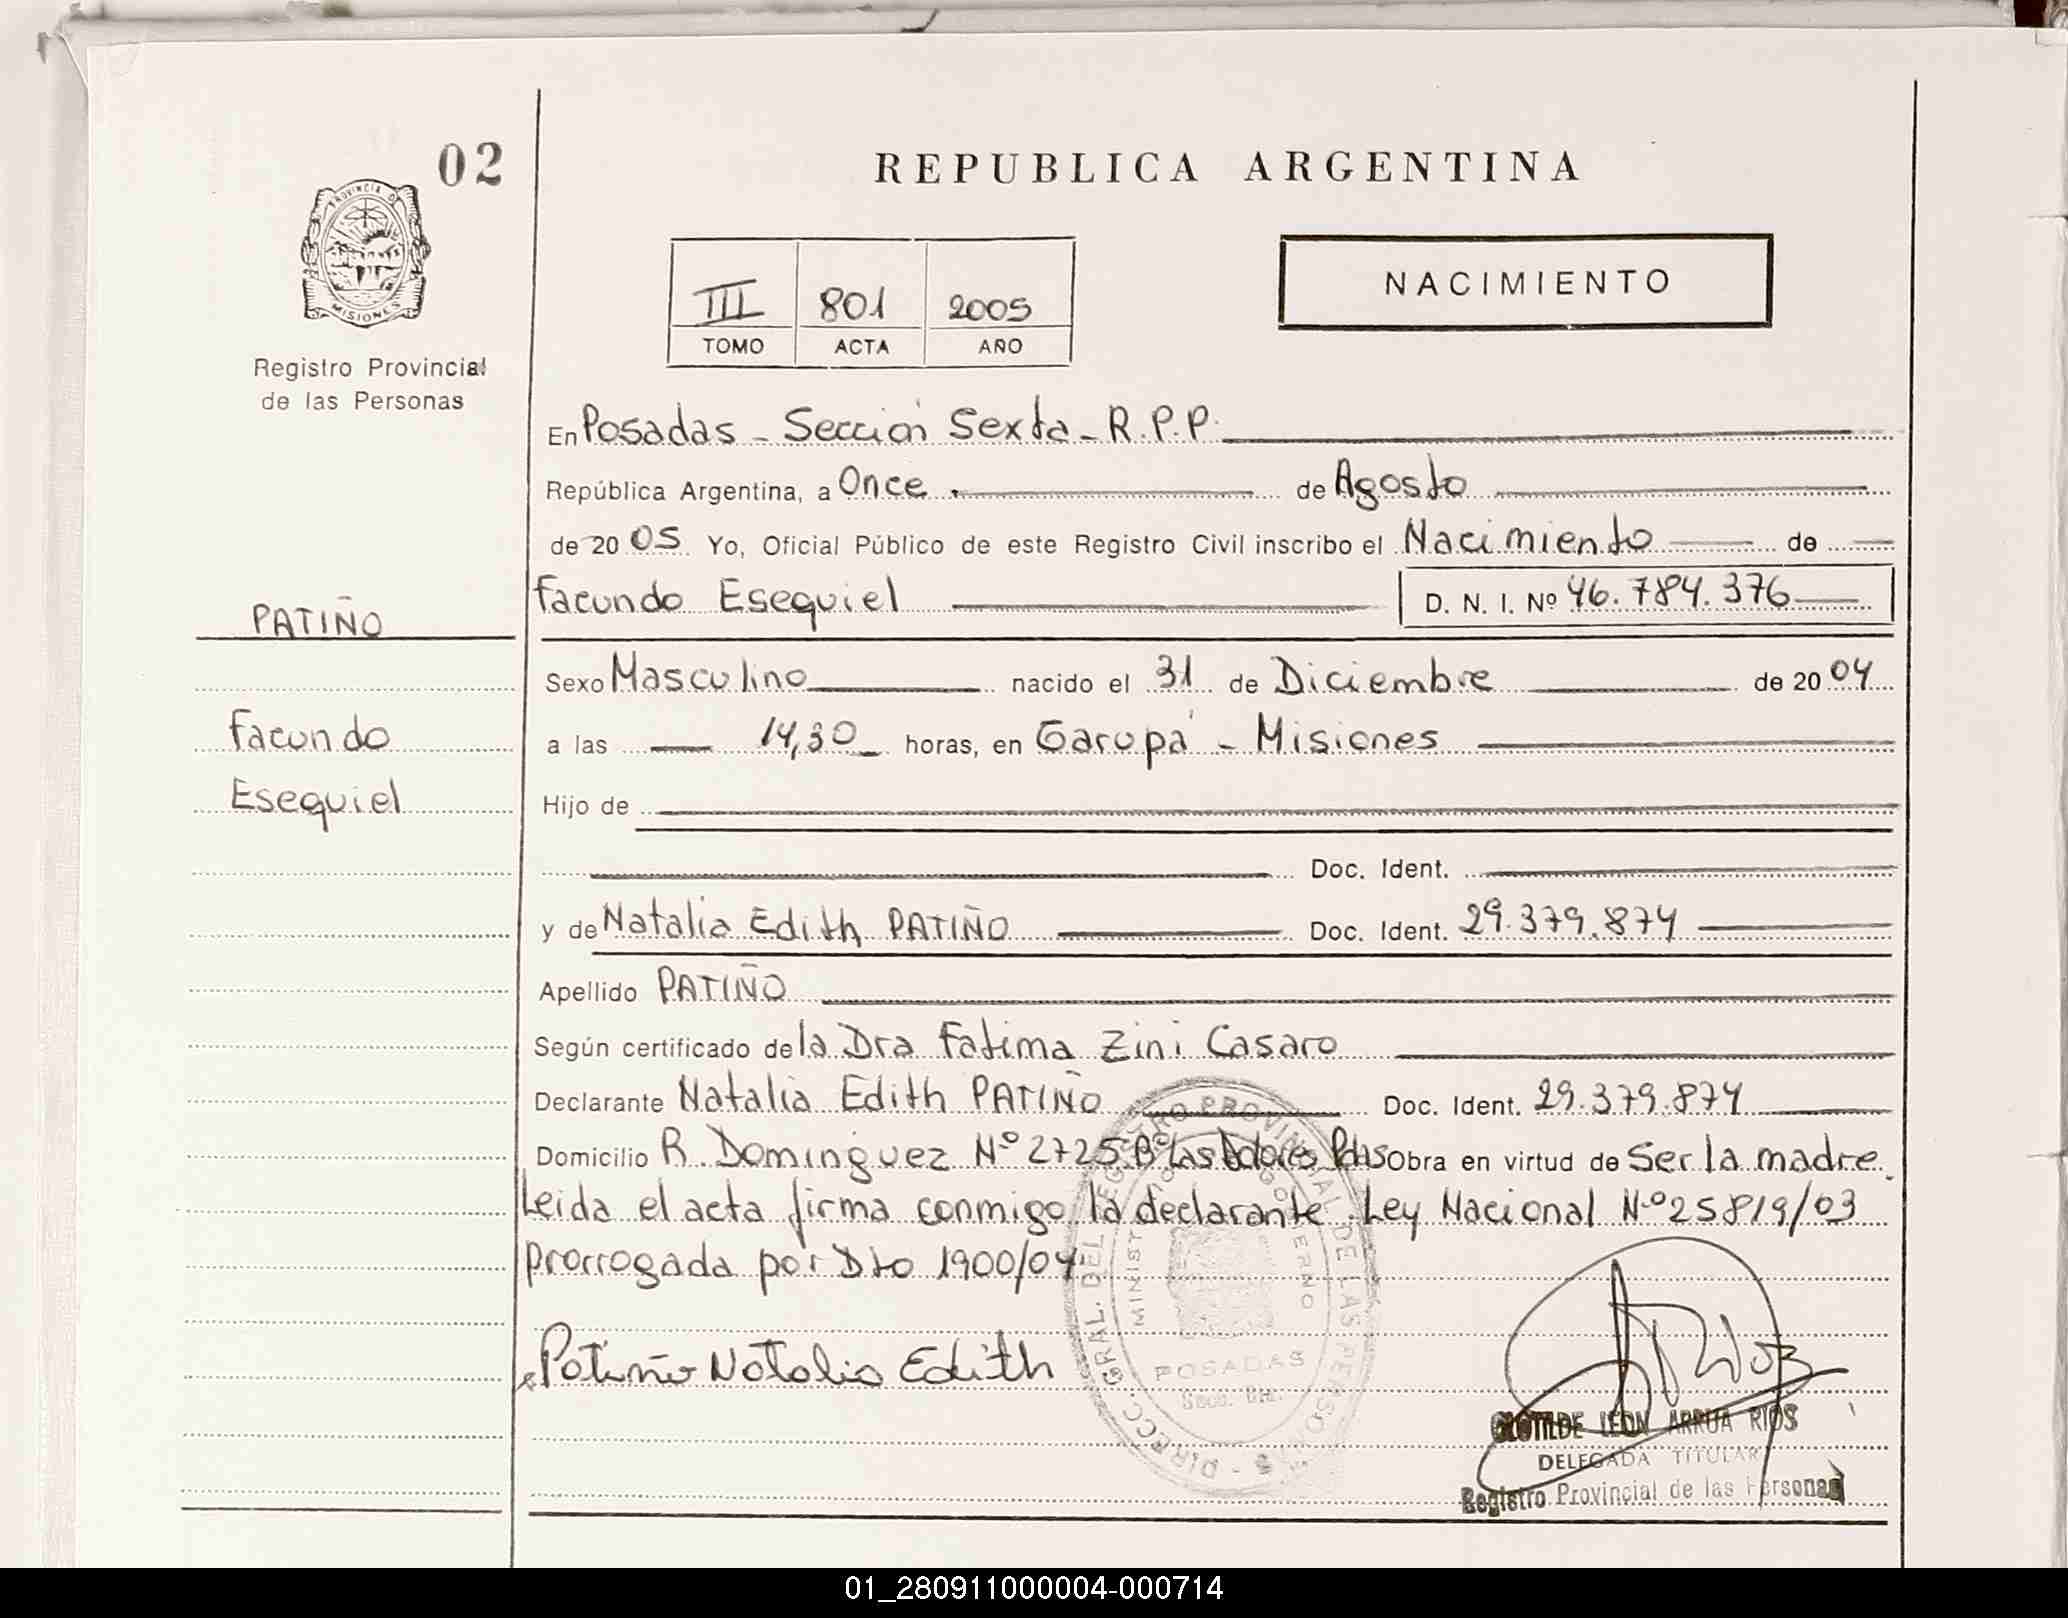 02
REPUBLICA ARGENTINA
PROVINCIA DE
MISIONES
Registro Provincial
de las Personas
III 801 2005
TOMO ACTA AÑO
NACIMIENTO
En Posadas - Sección Sexta - R.P.P.
República Argentina, a Once de Agosto
de 20 05 Yo, Oficial Público de este Registro Civil inscribo el Nacimiento de
Facundo Esequiel D. N. I. Nº 46.784.376
PATIÑO
Facundo
Esequiel
Sexo Masculino nacido el 31 de Diciembre de 20 04
a las 14,30 horas, en Garupá - Misiones
Hijo de
Doc. Ident.
y de Natalia Edith PATIÑO Doc. Ident. 29.379.874
Apellido PATIÑO
Según certificado de la Dra Fatima Zini Casaro
Declarante Natalia Edith PATIÑO Doc. Ident. 29.379.874
Domicilio R. Dominguez Nº 2725 Bº Las Dolores Pdas Obra en virtud de Ser la madre.
Leida el acta firma conmigo la declarante. Ley Nacional Nº 25819/03
prorrogada por Dto 1900/04.
Patiño Natalia Edith
DIRECC. GRAL. DEL REGISTRO PROVINCIAL DE LAS PERSONAS
MINISTERIO GOBIERNO
POSADAS
CLOTILDE LEON ARRUA RIOS
DELEGADA TITULAR
Registro Provincial de las Personas
01_280911000004-000714